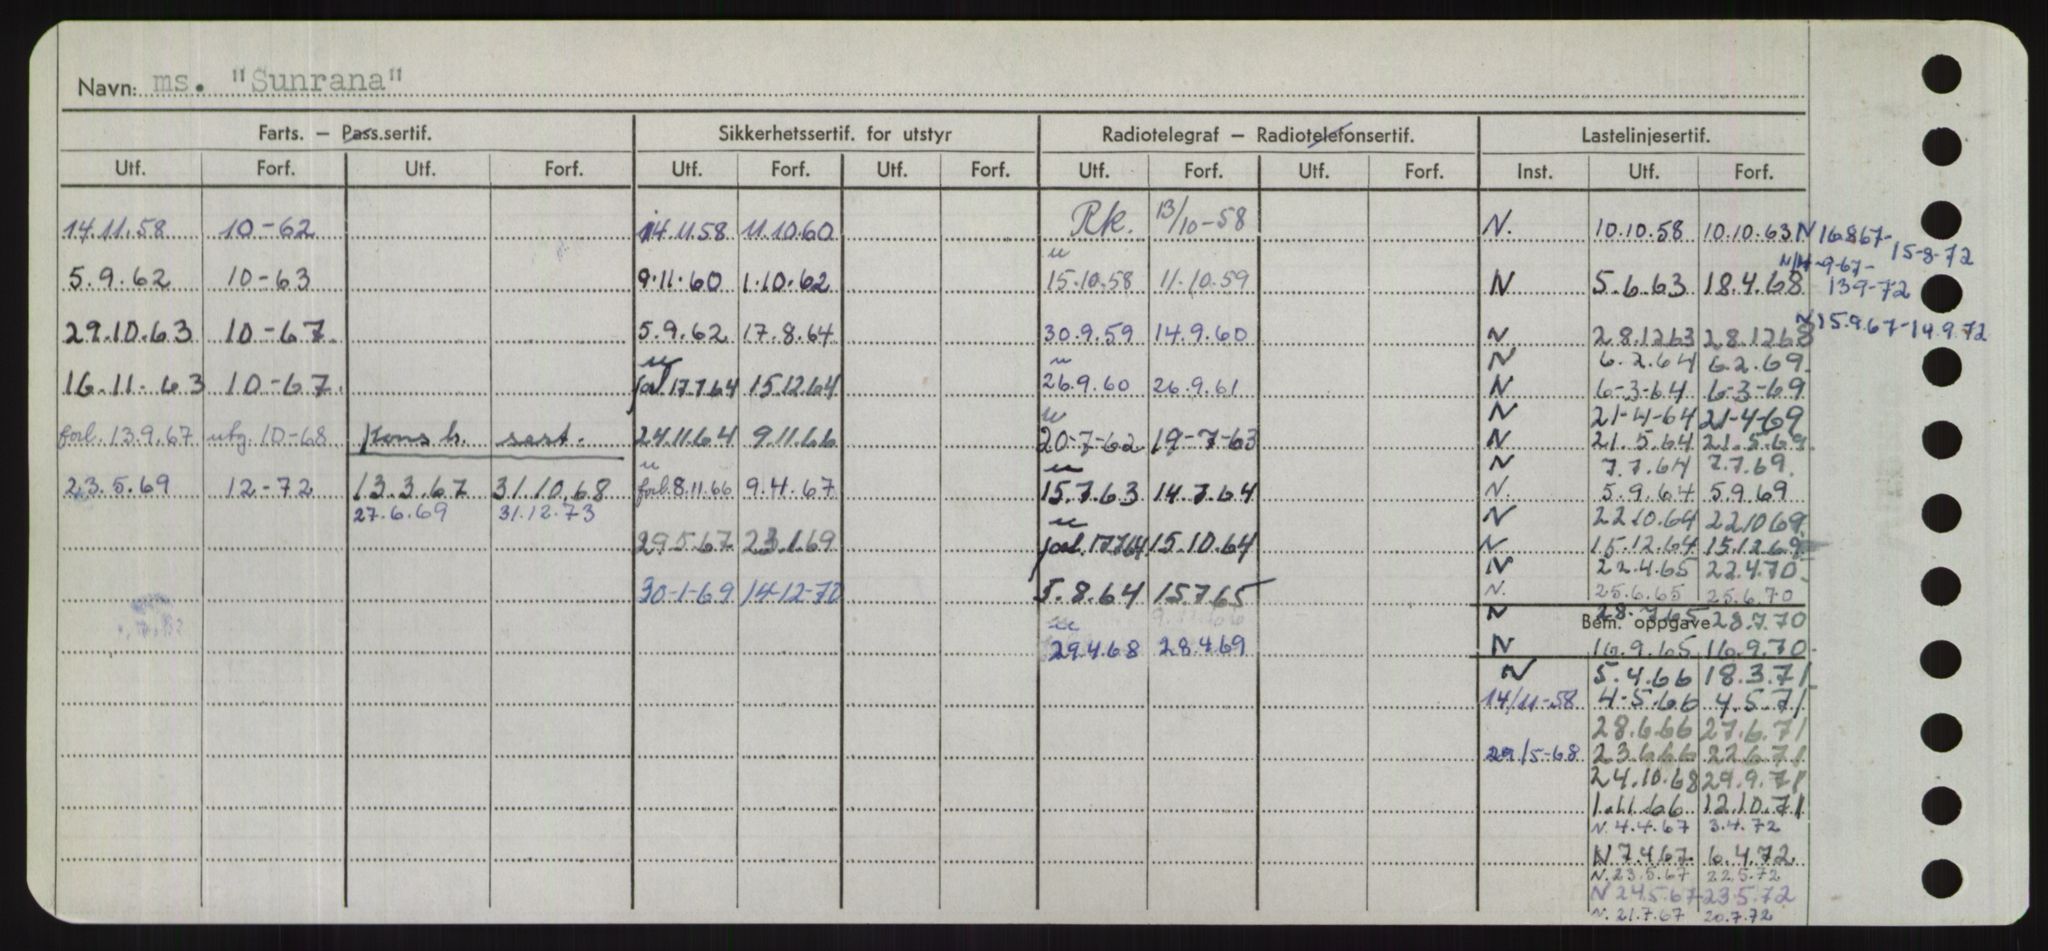 Navn: ms. "Sunrana"
Farts. – Pass.sertif. Sikkerhetssertif. for utstyr Radiotelegraf – Radiotelefonsertif. Lastelinjesertif.
Utf. Forf. Utf. Forf. Utf. Forf. Utf. Forf. Utf. Forf. Utf. Forf. Inst. Utf. Forf.
14.11.58 10-62 14.11.58 11.10.60 Rk. 13/10-58 N. 10.10.58 10.10.63 N 16867-15-8-72
N14-9-67-139-72
5.9.62 10-63 9.11.60 1.10.62 15.10.58 11.10.59 N 5.6.63 18.4.68
29.10.63 10-67. 5.9.62 17.8.64 30.9.59 14.9.60 N 28.1263 28.1268 N15.967-14.9.72
N 6.2.64 6.2.69.
16.11.63 10-67. forl 17.7.64 15.12.64 26.9.60 26.9.61 N 6-3-64 6-3-69
N 21-4-64 21-4-69
forl. 13.9.67 utg. 10-68 Kons b. sert. 24.11.64 9.11.66 20-7-62 19-7-63 N 21.5.64 21.5.69.
N 7.7.64 7.7.69.
23.5.69 12-72 13.3.67 31.10.68 forl. 8.11.66 9.4.67 15.7.63 14.7.64 N. 5.9.64 5.9.69
27.6.69 31.12.73 N 22.10.64 221069
29.5.67 23.1.69 forl. 17.7.64 15.10.64 N 15.12.64 15.12.69
N 22.4.65 22.4.70
30-1-69 14-12-70 5.8.64 15.7.65 N. 25.6.65 25.6.70
N 28.7.65 28.7.70
Bem. oppgave
29.4.68 28.4.69 N 16.9.65 16.9.70
N 5.4.66 18.3.71
14/11-58 4-5.66 4.5.71
28.6.66 27.6.71
29/5-68 23.6.66 22.6.71
24.10.68 29.9.71
1.11.66 12.10.71
N. 4.4.67 3.4.72
N 7.4.67. 6.4.72
N. 23.5.67 22.5.72
N 24.5.67-23.5.72
N. 21.7.67 20.7.72